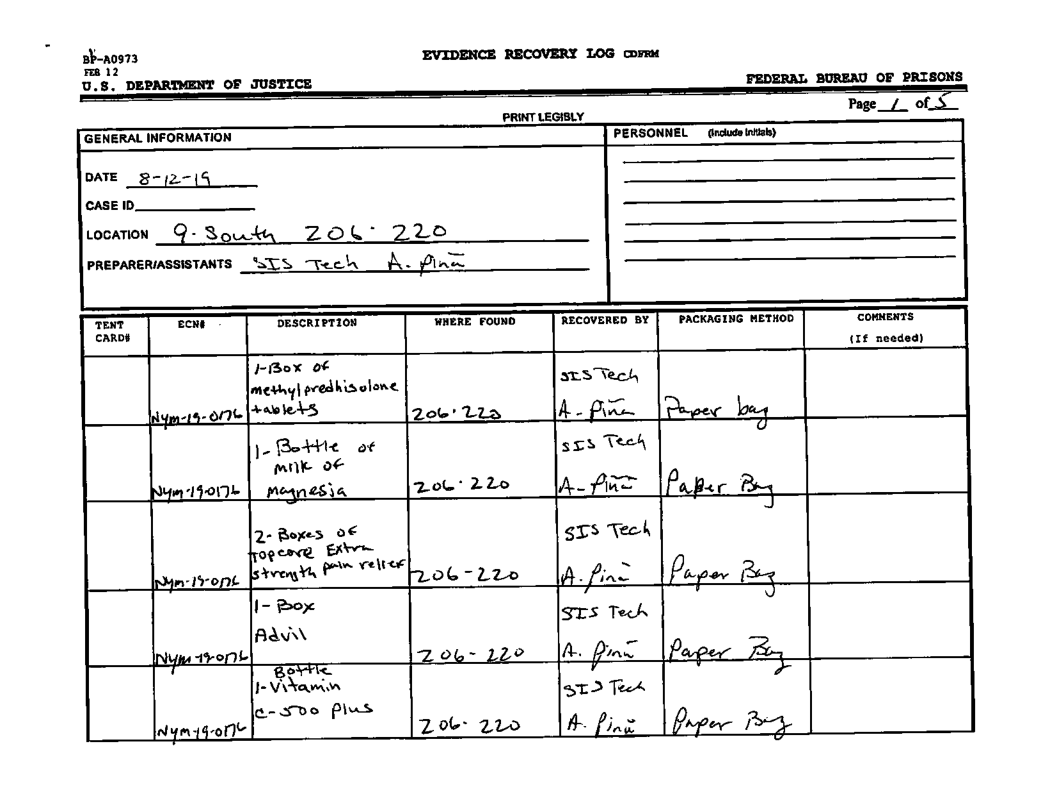 BP-A0973
FEB 12
EVIDENCE RECOVERY LOG CDFRM
U.S. DEPARTMENT OF JUSTICE
FEDERAL BUREAU OF PRISONS
Page 1 of 5
PRINT LEGIBLY
GENERAL INFORMATION
PERSONNEL (Include Initials)
DATE 8-12-19
CASE ID
LOCATION 9-South Z06-220
PREPARER/ASSISTANTS SIS Tech A. Pina
TENT CARD# ECN# DESCRIPTION WHERE FOUND RECOVERED BY PACKAGING METHOD COMMENTS (If needed)
1-Box of
methylpredhisolone
tablets
Nym-19-0176
206-220
SIS Tech
A-Pina
Paper bag
1-Bottle of
milk of
magnesia
Nym-19-0176
Z06-220
SIS Tech
A-Pina
Paper Bag
2-Boxes of
topcare Extra
strength pain relief
Nym-19-0176
Z06-220
SIS Tech
A. Pina
Paper Bag
1-Box
Advil
Nym-19-0176
Z06-220
SIS Tech
A. Pina
Paper Bag
Bottle
1-Vitamin
C-500 Plus
Nym-19-0176
Z06-220
SIS Tech
A. Pina
Paper Bag